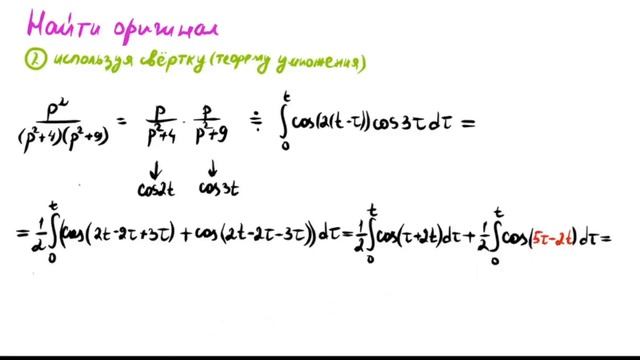 Найти оригинал
② используя свёртку (теорему умножения)
p²/((p²+4)(p²+9)) = p/(p²+4) · p/(p²+9) ≑ ∫₀ᵗ cos(2(t-τ)) cos3τ dτ =
↓ ↓
cos2t cos3t
= 1/2 ∫₀ᵗ (cos(2t-2τ+3τ) + cos(2t-2τ-3τ)) dτ = 1/2 ∫₀ᵗ cos(τ+2t)dτ + 1/2 ∫₀ᵗ cos(5τ-2t) dτ =